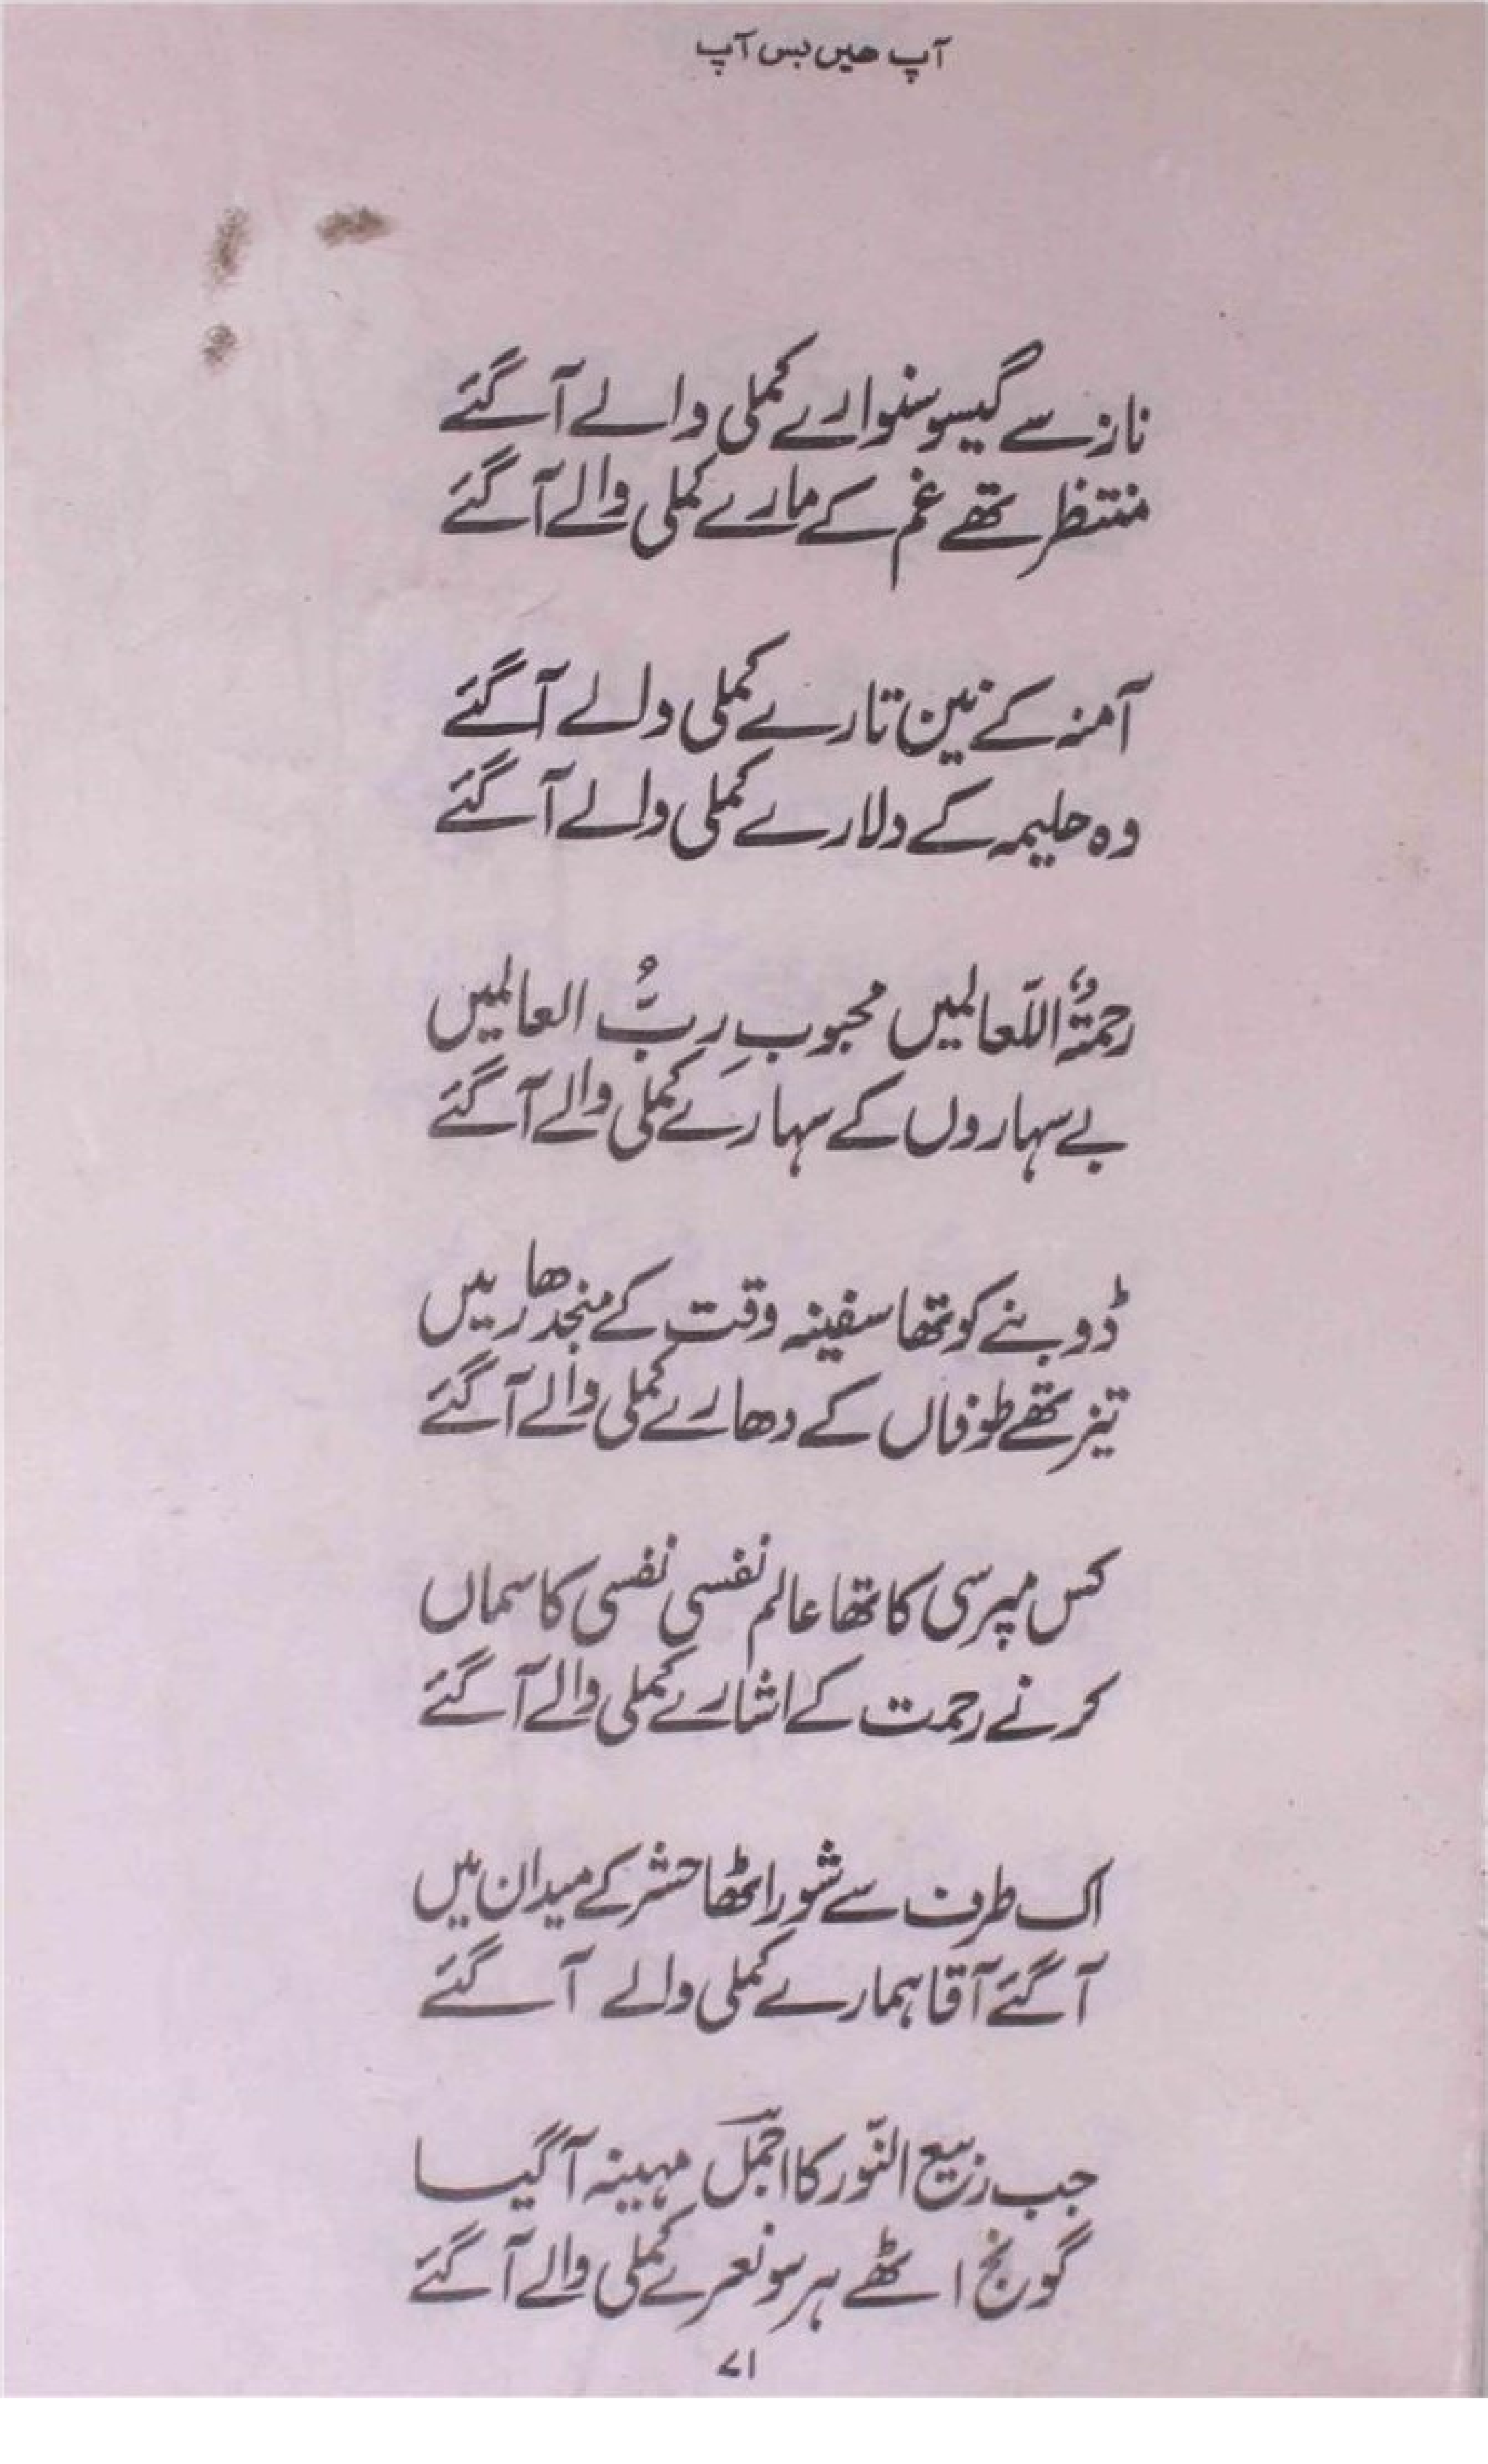 آپ ھیں بس آپ
ناز سے گیسو سنوارے کملی والے آگئے
منتظر تھے غم کے مارے کملی والے آگئے
آمنہ کے نین تارے کملی والے آگئے
وہ حلیمہ کے دلارے کملی والے آگئے
رحمتہُ اللّعالمیں محبوبِ ربُّ العالمیں
بے سہاروں کے سہارے کملی والے آگئے
ڈوبنے کو تھا سفینہ وقت کے منجدھار میں
تیز تھے طوفاں کے دھارے کملی والے آگئے
کس مپرسی کا تھا عالم نفسی نفسی کا سماں
کرنے رحمت کے اشارے کملی والے آگئے
اک طرف سے شور اٹھا حشر کے میدان میں
آگئے آقا ہمارے کملی والے آگئے
جب ربیع النّور کا اجملؔ مہینہ آگیا
گونج اٹھے ہر سو نعرے کملی والے آگئے
۷۱